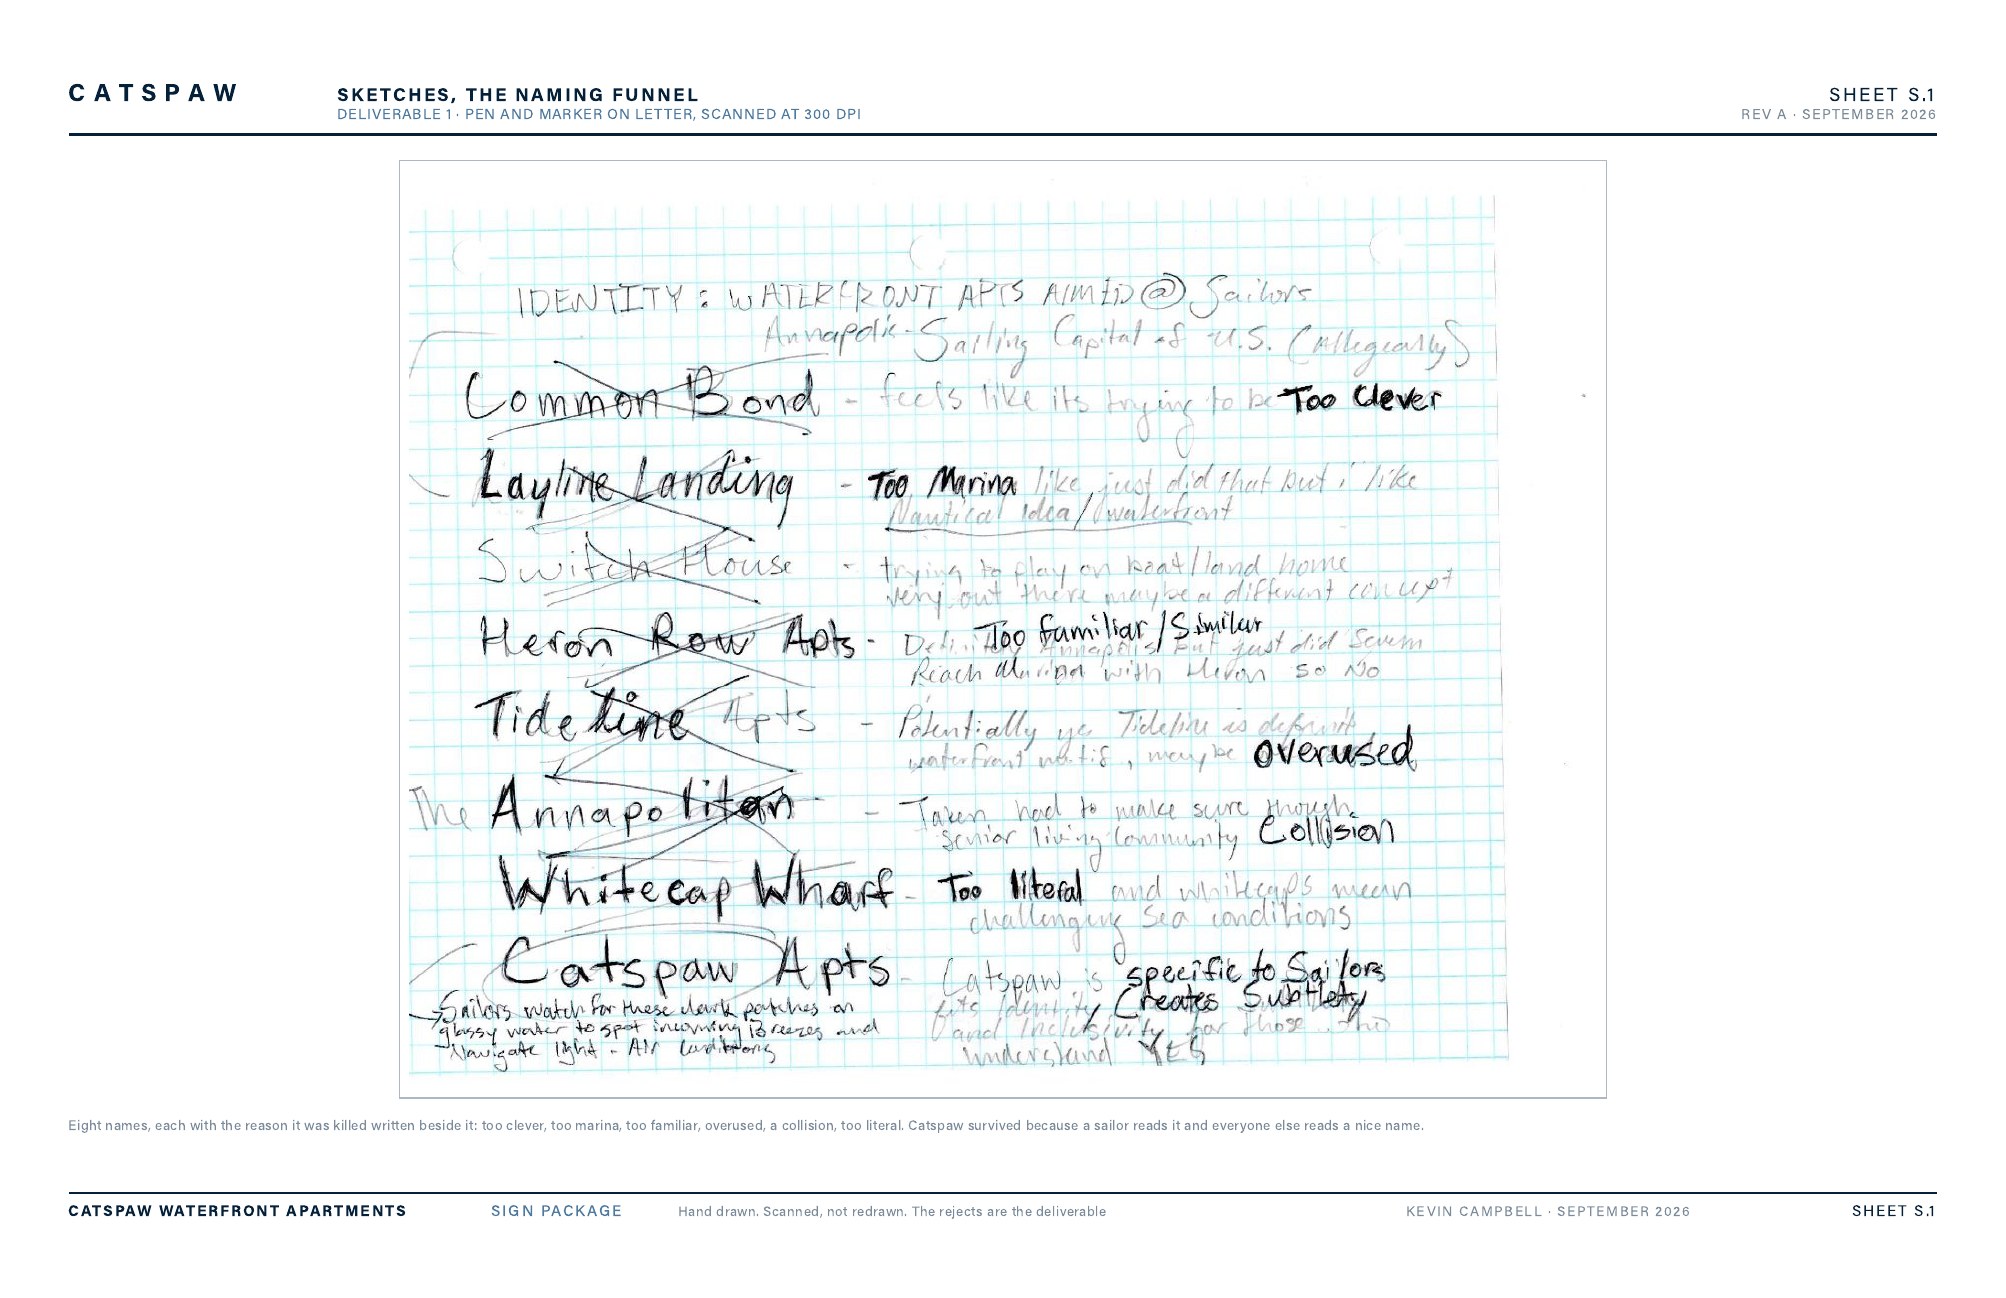 CATSPAW
SKETCHES, THE NAMING FUNNEL
DELIVERABLE 1 · PEN AND MARKER ON LETTER, SCANNED AT 300 DPI
SHEET S.1
REV A · SEPTEMBER 2026
IDENTITY : WATERFRONT APTS AIMED @ Sailors
Sailing Capital of U.S. (Allegearly)
Common Bond - feels like its trying to be Too Clever
Layline Landing - Too Marina like just did that but i like
Nautical Idea/waterfront
Switch House - trying to play on boat/land home
very out there maybe a different concept
Heron Row Apts - Too familiar/Similar
Definitely Annapolis but just did Severn
Reach Marina with Heron so No
Tideline Apts - Potentially Tideline is
waterfront motif, maybe overused
The Annapolitan - Taken had to make sure though
senior living community Collision
Whitecap Wharf - Too literal and whitecaps mean
challenging sea conditions
Catspaw Apts - Catspaw is specific to Sailors
fits Identity Creates Subtlety
and Inclusivity for those
understand YES
Sailors watch for these dark patches on
glassy water to spot incoming Breezes and
Navigate light - Air Conditions
Eight names, each with the reason it was killed written beside it: too clever, too marina, too familiar, overused, a collision, too literal. Catspaw survived because a sailor reads it and everyone else reads a nice name.
CATSPAW WATERFRONT APARTMENTS
SIGN PACKAGE
Hand drawn. Scanned, not redrawn. The rejects are the deliverable
KEVIN CAMPBELL · SEPTEMBER 2026
SHEET S.1